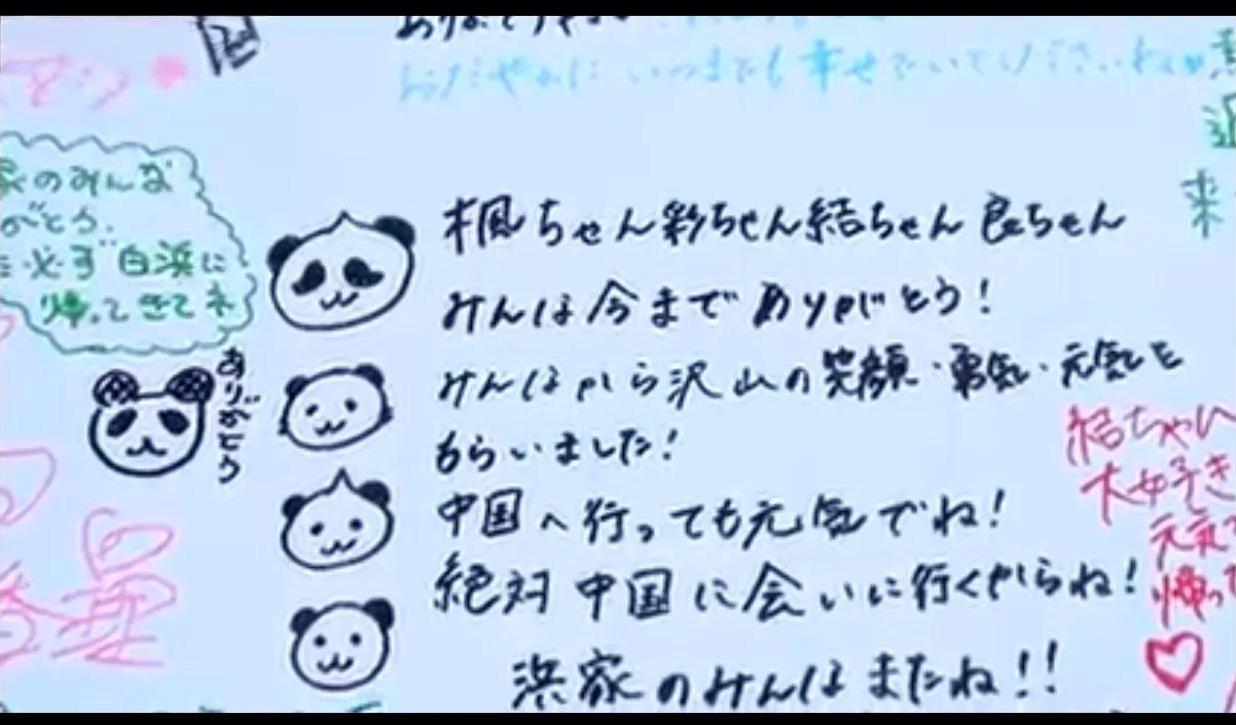 おだやかに いつまでも幸せでいてくださいね♥
家のみんな
がとう.
必ず白浜に
帰ってきてネ
ありがとう
楓ちゃん彩ちゃん結ちゃん良ちゃん
みんな今までありがとう!
みんなから沢山の笑顔・勇気・元気を
もらいました!
中国へ行っても元気でね!
絶対中国に会いに行くからね!
浜家のみんなまたね!!
結ちゃん
大好き
元気で
帰って